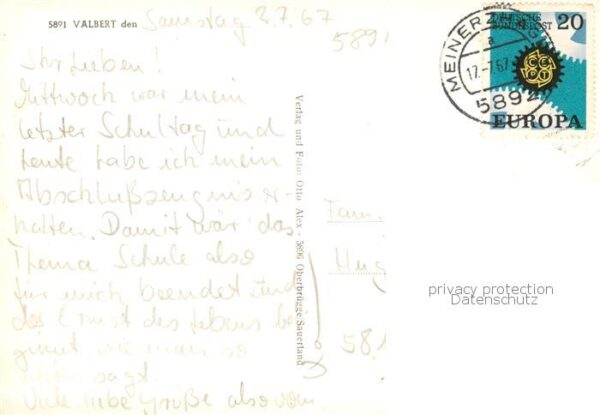 5891 VALBERT den Samstag 8.7.67
Ihr Lieben!
Mittwoch war mein
letzter Schultag und
heute habe ich mein
Abschlußzeugnis er-
halten. Damit wär das
Thema Schule also
für mich beendet und
der Ernst des Lebens be-
ginnt, wie man so
schön sagt.
Viele liebe Grüße also vom
Verlag und Foto: Otto Alex - 5896 Oberbrügge/Sauerland
5891
MEINERZ
a
12.-7.67
5892
DEUTSCHE
BUNDESPOST
20
CEPT
EUROPA
Fam.
Hug
58
privacy protection
Datenschutz